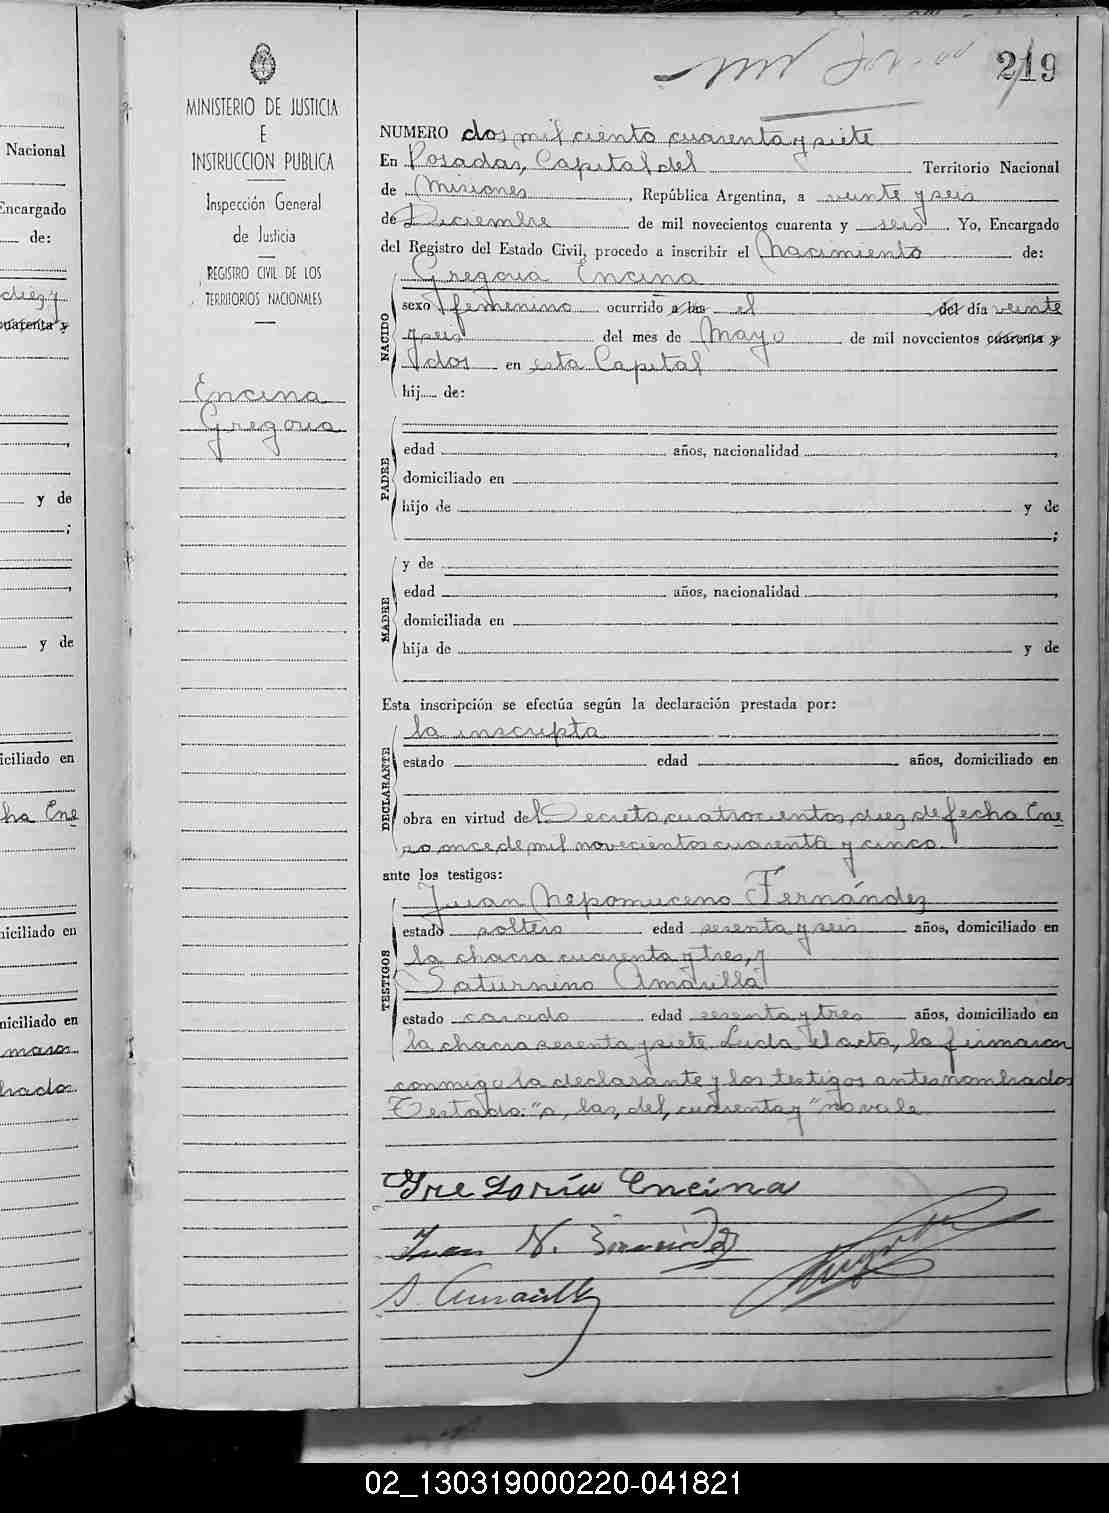 219
MINISTERIO DE JUSTICIA
E
INSTRUCCION PUBLICA
Inspección General
de Justicia
REGISTRO CIVIL DE LOS
TERRITORIOS NACIONALES
Encina
Gregoria
NUMERO dos mil ciento cuarenta y siete
En Posadas, Capital del Territorio Nacional
de Misiones, República Argentina, a veinte y seis
de Diciembre de mil novecientos cuarenta y seis. Yo, Encargado
del Registro del Estado Civil, procedo a inscribir el Nacimiento de:
Gregoria Encina
NACIDO
sexo femenino ocurrido a las el del día veinte
y seis del mes de Mayo de mil novecientos cuarenta y
dos en esta Capital
hij de:
PADRE
edad años, nacionalidad ,
domiciliado en
hijo de y de
;
MADRE
y de
edad años, nacionalidad ,
domiciliada en
hija de y de
Esta inscripción se efectúa según la declaración prestada por:
DECLARANTE
la inscripta
estado edad años, domiciliado en
obra en virtud del Decreto cuatrocientos diez de fecha Ene
ro once de mil novecientos cuarenta y cinco.
ante los testigos:
TESTIGOS
Juan Nepomuceno Fernández
estado soltero edad sesenta y seis años, domiciliado en
la chacra cuarenta y tres, y
Saturnino Amarilla
estado casado edad sesenta y tres años, domiciliado en
la chacra sesenta y siete. Leida el acta, la firmaron
conmigo la declarante y los testigos antes nombrados
Testado: "a, las, del, cuarenta y" no vale
Gregoria Encina
Juan N. Fernández
S. Amarilla
Nacional
Encargado
de:
diez y
cuarenta y
y de
;
,
y de
iciliado en
ha Ene
iciliado en
niciliado en
maron
brados
02_130319000220-041821